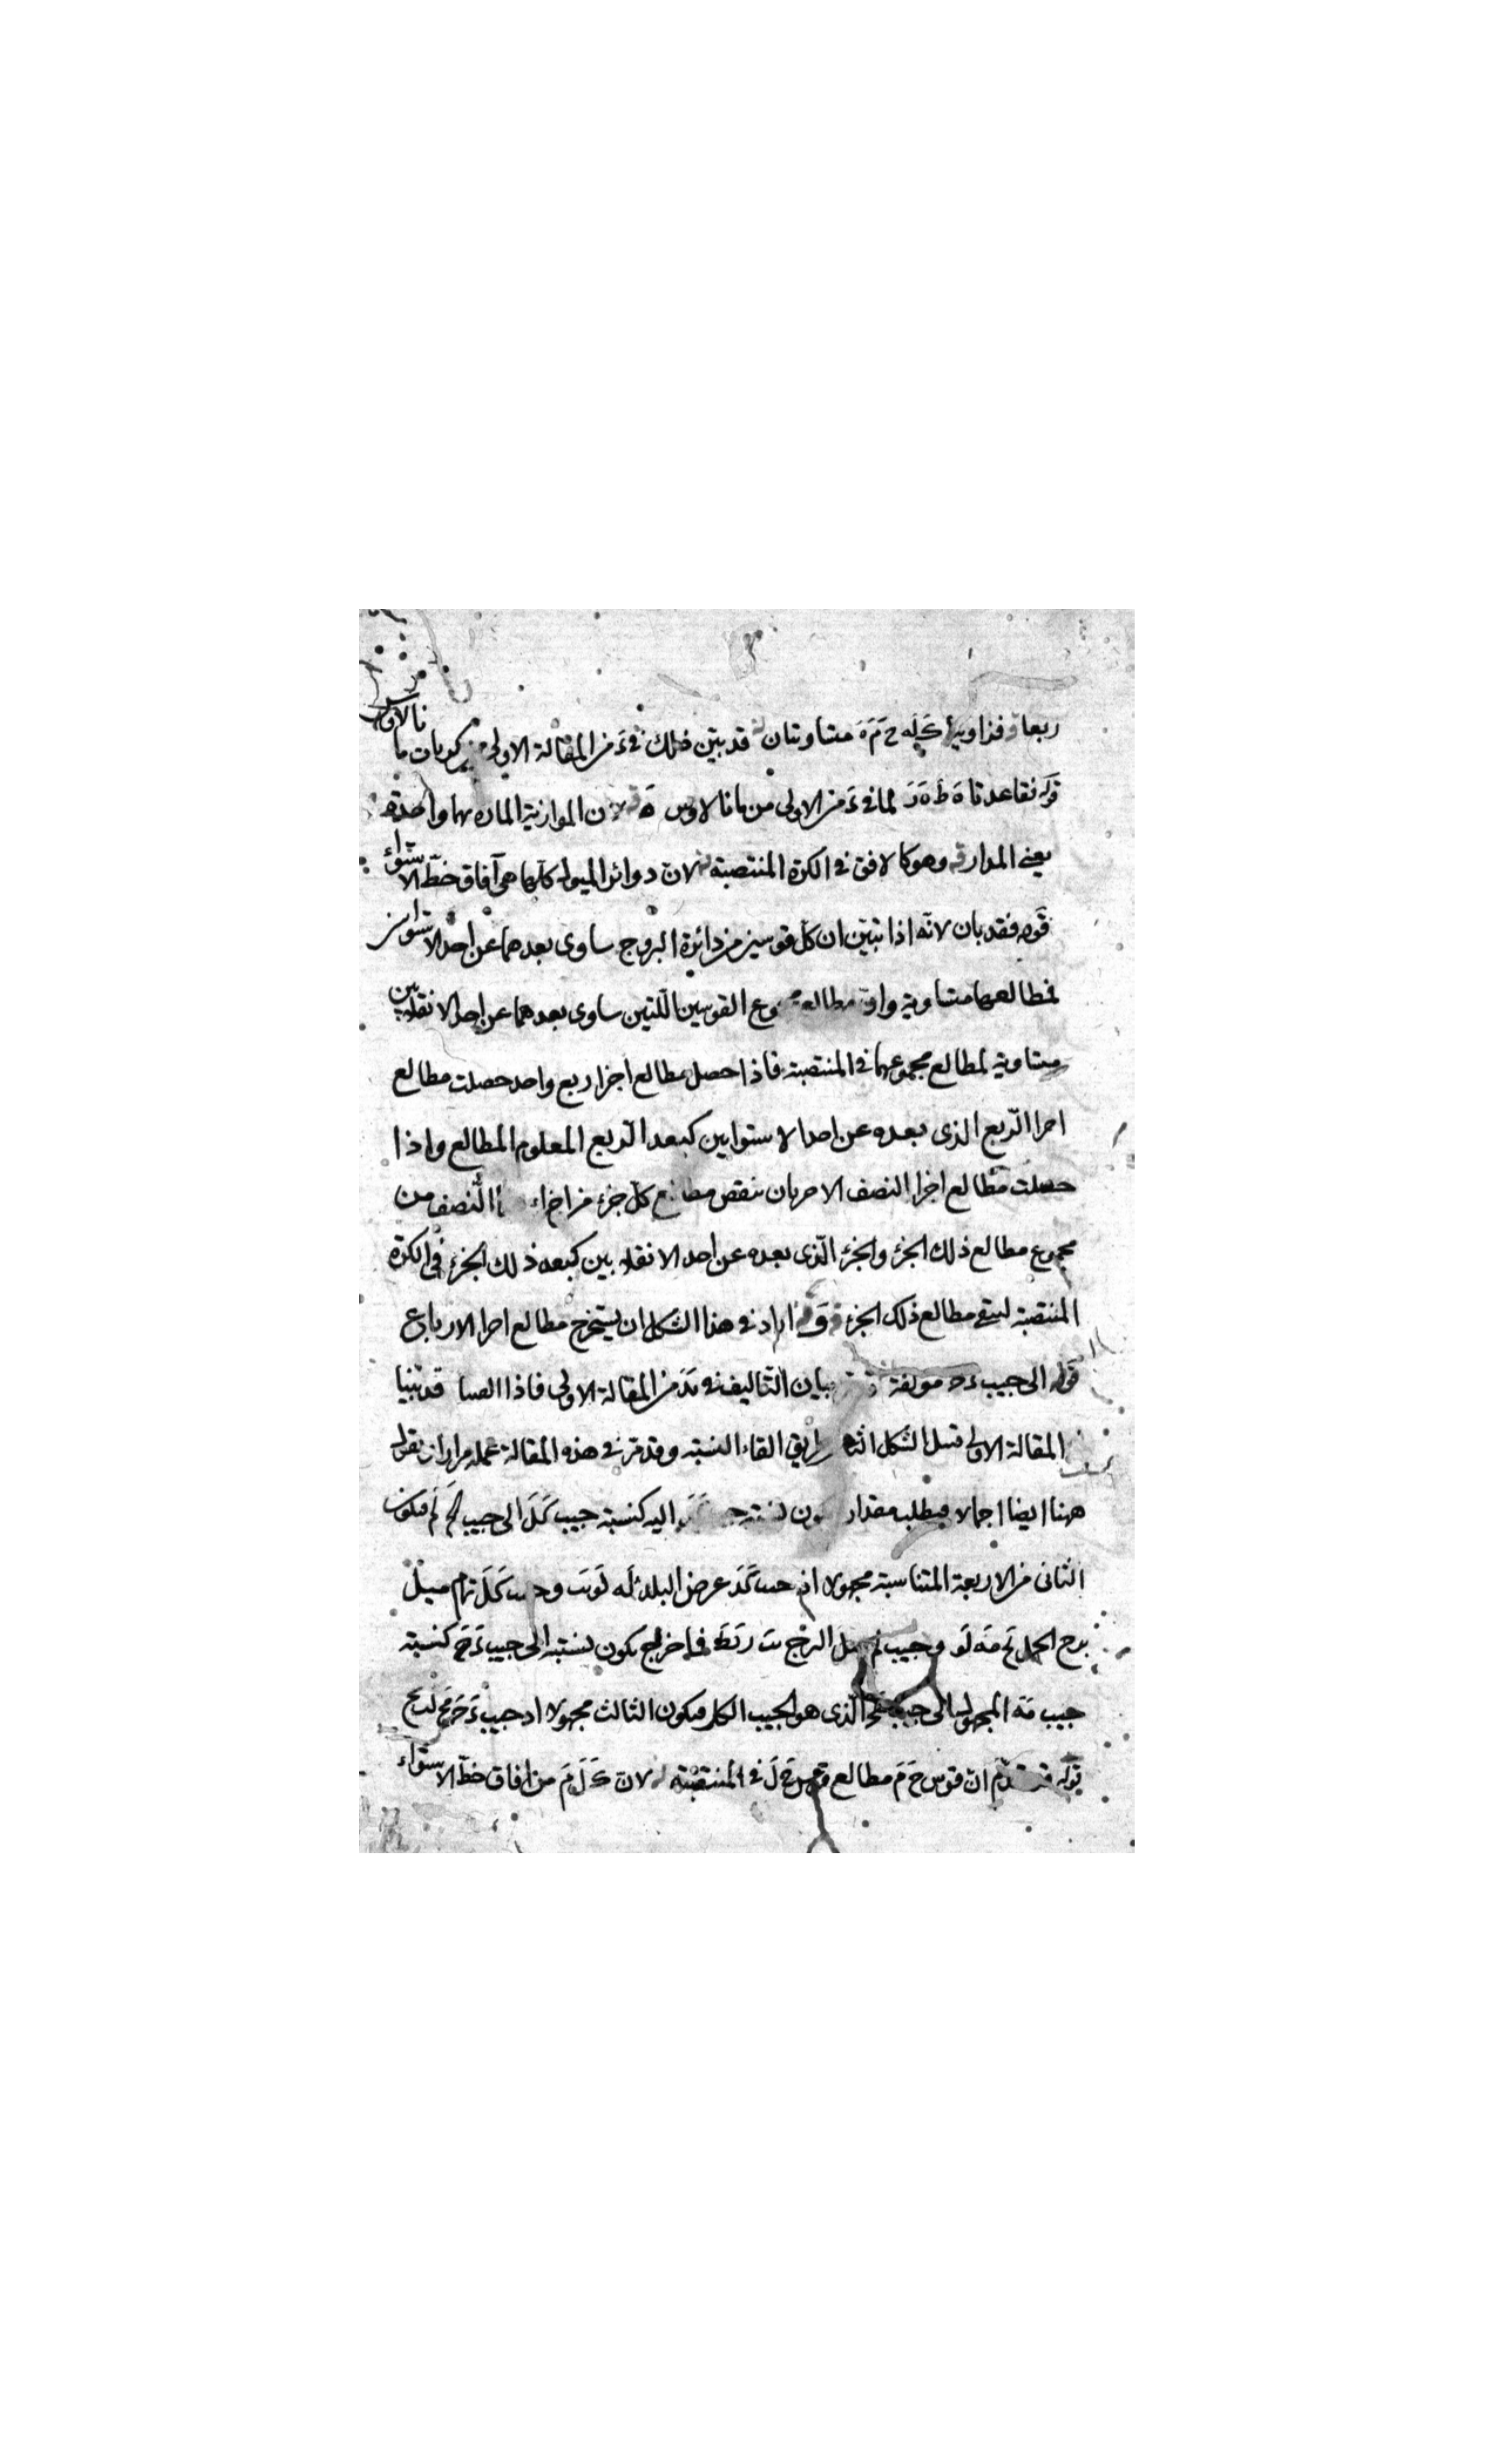 ربعا فزاويتا ك له ح م ه متساويتان قد بين ذلك في د من المقالة الاولى من كريات مانالاوس
قوله فقاعدتا ه ط ه ر لما في د من الاولى من مانالاوس ه لان الموازية الماره بهما واحدة
يعني المدار وهو كالافق في الكرة المنتصبة لان دوائر الميول كلها هي آفاق خط الاستواء
قوله فقد بان لانه اذا تبين ان كل قوسين من دائرة البروج ساوى بعدهما عن احد الاستوائين
فمطالعهما متساوية وان مطالع مجموع القوسين اللتين ساوى بعدهما عن احد الانقلابين
متساوية لمطالع مجموعهما في المنتصبة فاذا حصل مطالع اجزا ربع واحد حصلت مطالع
اجزا الربع الذى بعده عن احد الاستوايين كبعد الربع المعلوم المطالع واذا
حصلت مطالع اجزا النصف الاخر بان ننقص مطالع كل جزء من اجزاء النصف من
مجموع مطالع ذلك الجزء والجزء الذى بعده عن احد الانقلابين كبعد ذلك الجزء في الكرة
المنتصبة ليبقى مطالع ذلك الجزء اراد في هذا الشكل ان يستخرج مطالع اجزا الارباع
قوله الى جيب ء ح مولفة بيان التاليف في من المقالة الاولى فاذا قد بينا
المقالة الاولى قبل الشكل طريق القاء النسبة وقد مر في هذه المقالة عمله مرارا نقول
ههنا ايضا اجمالا فيطلب مقدار يكون نسبة اليه كنسبة جيب ك ل الى جيب ل م فيكون
الثانى من الاربعة المتناسبة مجهولا جيب ك د عرض البلد له لو وجيب ك ل تمام ميل
برج الحمل مه لو وجيب ل م ميل البرج فما خرج يكون نسبته الى جيب ء ح كنسبة
جيب م ه المجهول الى جيب الذى هو الجيب الكل فيكون الثالث مجهولا اذ جيب ء ح
قوله قد تقدم ان قوس ح م مطالع قوس ح ل في المنتصبة لان ك ل م من افاق خط الاستواء